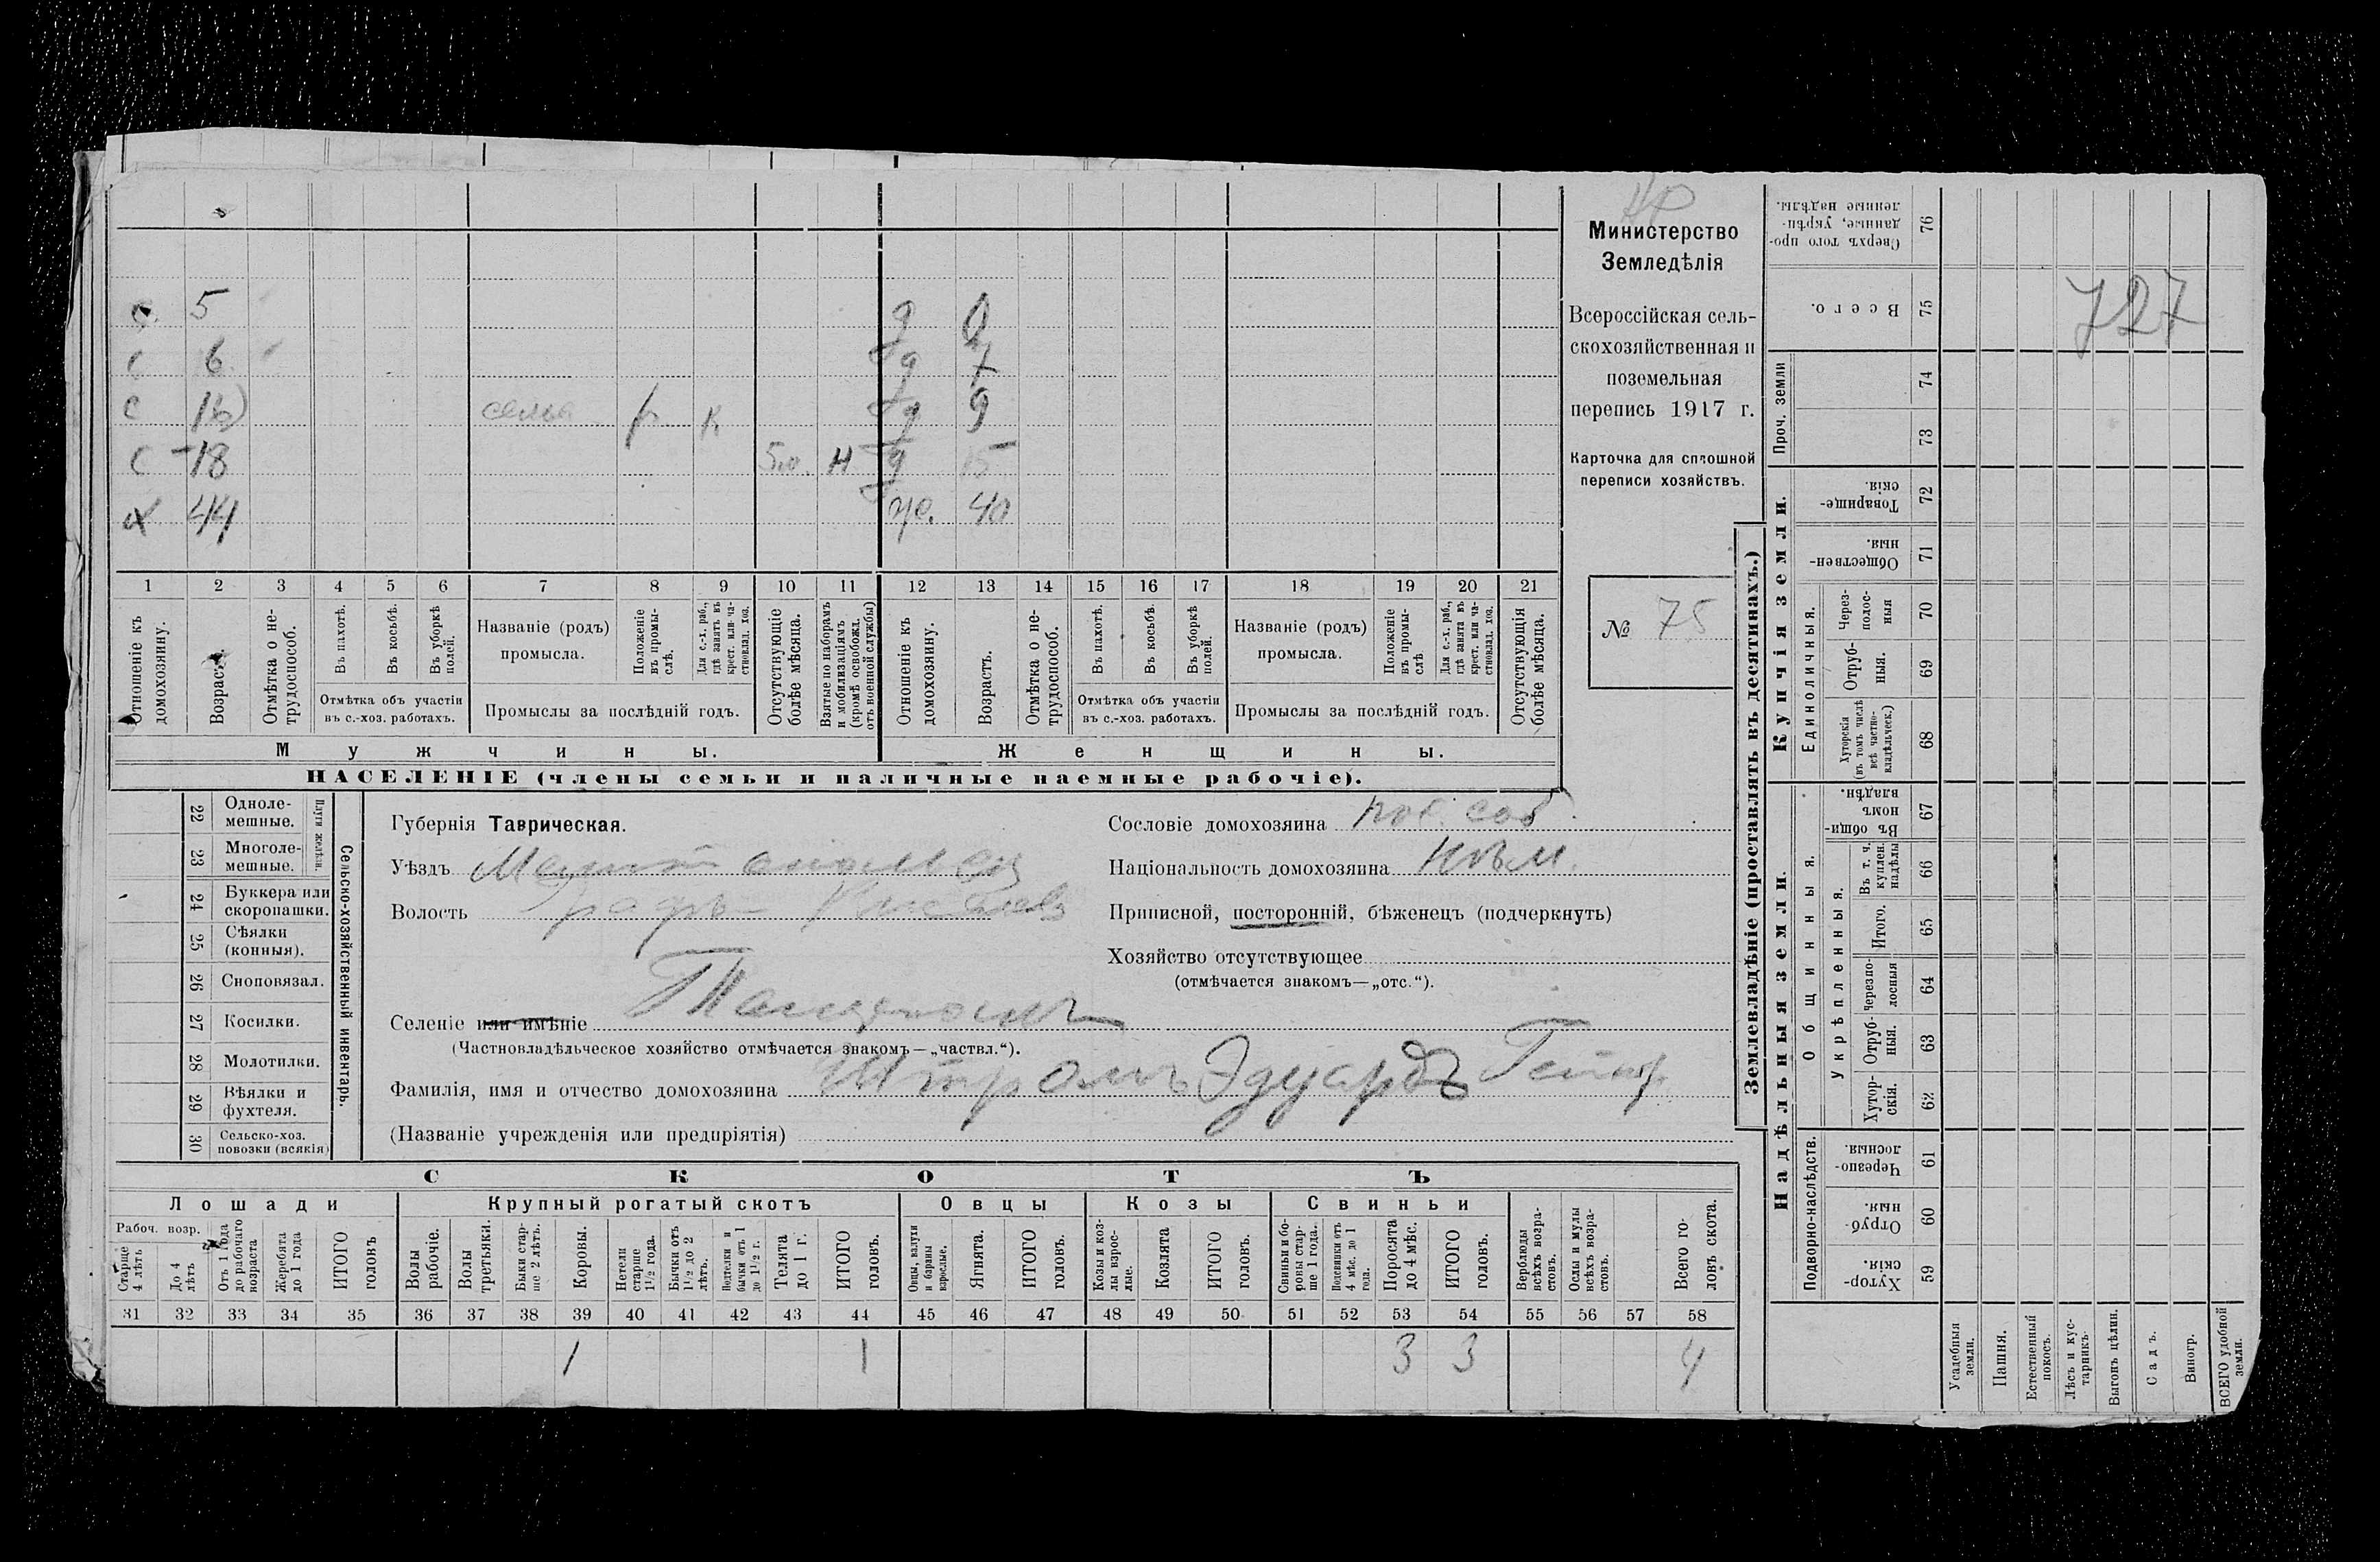 5
6
с
сельх
р
к
9
с 18
н
15
х 44
же. 40
1 2 3 4 5 6 7 8 9 10 11 12 13 14 15 16 17 18 19 20 21
Отношеніе къ домохозяину.
Возрастъ.
Отмѣтка о не-
трудоспособ.
Въ пахотѣ.
Въ косьбѣ.
Въ уборкѣ полей.
Отмѣтка объ участіи
въ с.-хоз. работахъ.
Названіе (родъ)
промысла.
Положеніе въ промы-
слѣ.
Для с.-х. раб.,
гдѣ занятъ въ
крест. или ча-
стновлад. хоз.
Промыслы за послѣдній годъ.
Отсутствующіе
болѣе мѣсяца.
Взятые по наборамъ
и мобилизаціямъ
(кромѣ освобожд.
отъ военной службы)
Отношеніе къ домохозяину.
Возрастъ.
Отмѣтка о не-
трудоспособ.
Въ пахотѣ.
Въ косьбѣ.
Въ уборкѣ полей.
Отмѣтка объ участіи
въ с.-хоз. работахъ.
Названіе (родъ)
промысла.
Положеніе въ промы-
слѣ
Для с.-х. раб.,
гдѣ занята въ
крест. или ча-
стновлад. хоз.
Промыслы за послѣдній годъ.
Отсутствующія
болѣе мѣсяца.
Мужчины.
Женщины.
НАСЕЛЕНІЕ (члены семьи и наличные наемные рабочіе).
Министерство
Земледѣлія
Всероссійская сель-
скохозяйственная и
поземельная
перепись 1917 г.
Карточка для сплошной
переписи хозяйствъ.
№ 75
22 Одноле-
мешные.
23 Многоле-
мешные.
24 Буккера или
скоропашки.
25 Сѣялки
(конныя).
26 Сноповязал.
27 Косилки.
28 Молотилки.
29 Вѣялки и
фухтеля.
30 Сельско-хоз.
повозки (всякія)
Сельско-хозяйственный инвентарь.
Губернія Таврическая.
Уѣздъ
Волость
Селеніе или имѣніе
(Частновладѣльческое хозяйство отмѣчается знакомъ—„частвл.“).
Фамилія, имя и отчество домохозяина Штромъ Эдуардъ
(Названіе учрежденія или предпріятія)
Сословіе домохозяина пос. соб.
Національность домохозяина нѣм.
Приписной, посторонній, бѣженецъ (подчеркнуть)
Хозяйство отсутствующее
(отмѣчается знакомъ—„отс.“).
СКОТЪ
Лошади
Рабоч. возр.
Старше
4 лѣтъ
До 4
лѣтъ
Отъ 1 года
до рабочаго
возраста
Жеребята
до 1 года
ИТОГО
головъ
Крупный рогатый скотъ
Волы
рабочіе.
Волы
третьяки.
Быки стар-
ше 2 лѣтъ.
Коровы.
Нетели
старше
1½ года.
Бычки отъ
1½ до 2
лѣтъ.
Подтелки и
бычки отъ 1
до 1½ г.
Телята
до 1 г.
ИТОГО
головъ.
Овцы
Овцы, валухи
и бараны
взрослые.
Ягнята.
ИТОГО
головъ.
Козы
Козы и коз-
лы взрос-
лые.
Козлята
ИТОГО
головъ.
Свиньи
Свиньи и бо-
ровы стар-
ше 1 года.
Подсвинки отъ
4 мѣс. до 1
года.
Поросята
до 4 мѣс.
ИТОГО
головъ.
Верблюды
всѣхъ возра-
стовъ.
Ослы и мулы
всѣхъ возра-
стовъ.
Всего го-
ловъ скота.
31 32 33 34 35 36 37 38 39 40 41 42 43 44 45 46 47 48 49 50 51 52 53 54 55 56 57 58
1 1 3 3 4
Землевладѣніе (проставлять въ десятинахъ.)
Надѣльныя земли.
Купчія земли.
Проч. земли
Подворно-наслѣдств.
Общинныя.
Укрѣпленныя.
Единоличныя.
Сверхъ того про-
данные, укрѣп-
ленные надѣлы. 76
Всего. 75
74
73
Товарище-
скія. 72
Обществен-
ныя. 71
Через-
полос-
ныя 70
Отруб-
ныя. 69
Хуторскія
(въ томъ числѣ
всѣ частно-
владѣльческ.) 68
Въ общи-
номъ
владѣн. 67
Въ т. ч.
куплен.
надѣлы 66
Итого. 65
Черезпо-
лосныя 64
Отруб-
ныя. 63
Хутор-
скія. 62
Черезпо-
лосныя. 61
Отруб-
ныя. 60
Хутор-
скія. 59
727
Усадебныя
земли.
Пашня.
Естественный
покосъ.
Лѣсъ и кус-
тарникъ
Выгонъ цѣлин.
Садъ.
Виногр.
ВСЕГО удобной
земли.